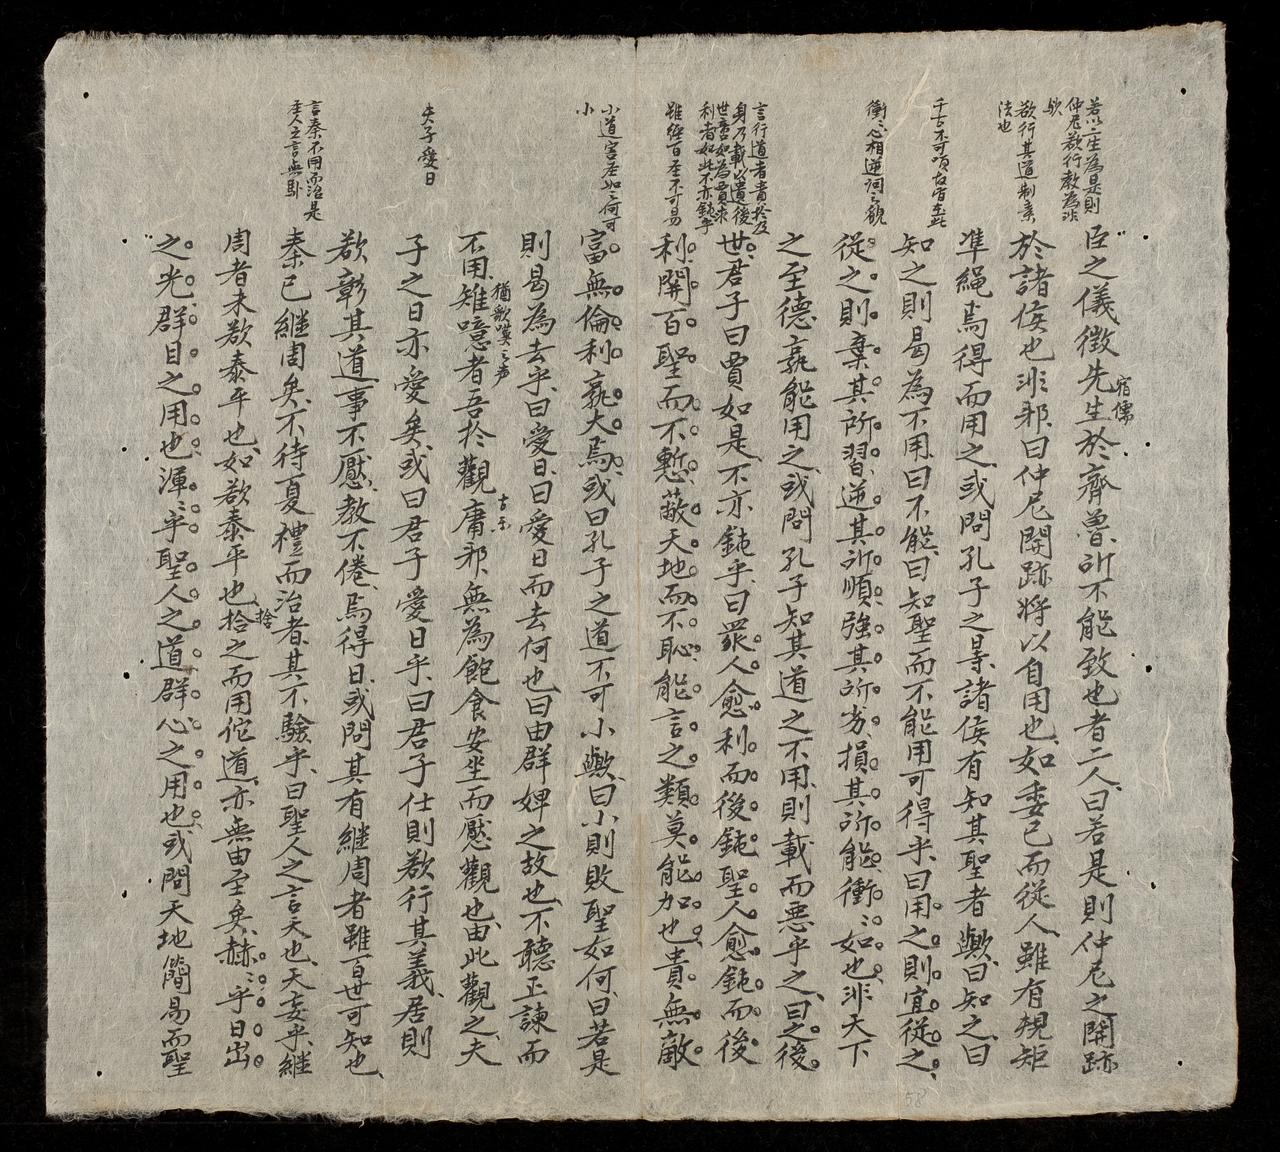 若以二生為是則
仲尼欲行教為非
歟
欲行其道制素
法也
千古不可
衝衝心相逆詞之貌
言行道者貴於及
身乃載以遺後
世譬如為賈求
利者如此不亦鈍乎
雖經百圣不可易
小道害圣如之何可
小
夫子愛日
言秦不用而治是
圣人之言無驗
臣之儀徵先生於齊魯所不能致也者二人曰若是則仲尼之開跡
宿儒
於諸侯也非邪曰仲尼開跡將以自用也如委己而從人雖有規矩
準繩焉得而用之或問孔子之時諸侯有知其聖者歟曰知之曰
知之則曷為不用曰不能曰知聖而不能用可得乎曰用之則宜從之
從之則棄其所習逆其所順強其所劣損其所能衝〻如也非天下
之至德孰能用之或問孔子知其道之不用則載而惡乎之曰之後
世君子曰賈如是不亦鈍乎曰眾人愈利而後鈍聖人愈鈍而後
利開百聖而不慙蔽天地而不恥能言之類莫能加也貴無敵
富無倫利孰大焉或曰孔子之道不可小歟曰小則敗聖如何曰若是
則曷為去乎曰愛日曰愛日而去何也曰由群婢之故也不聽正諫而
不用雉噫者吾於觀庸邪無為飽食安坐而厭觀也由此觀之夫
猶歌嘆之声
子之日亦愛矣或曰君子愛日乎曰君子仕則欲行其義居則
欲彰其道事不厭教不倦焉得日或問其有繼周者雖百世可知也
秦已繼周矣不待夏禮而治者其不驗乎曰聖人之言天也天妄乎繼
周者未欲泰平也如欲泰平也捨之而用佗道亦無由至矣赫〻乎日出
捨
之光群目之用也渾〻乎聖人之道群心之用也或問天地簡易而聖
58